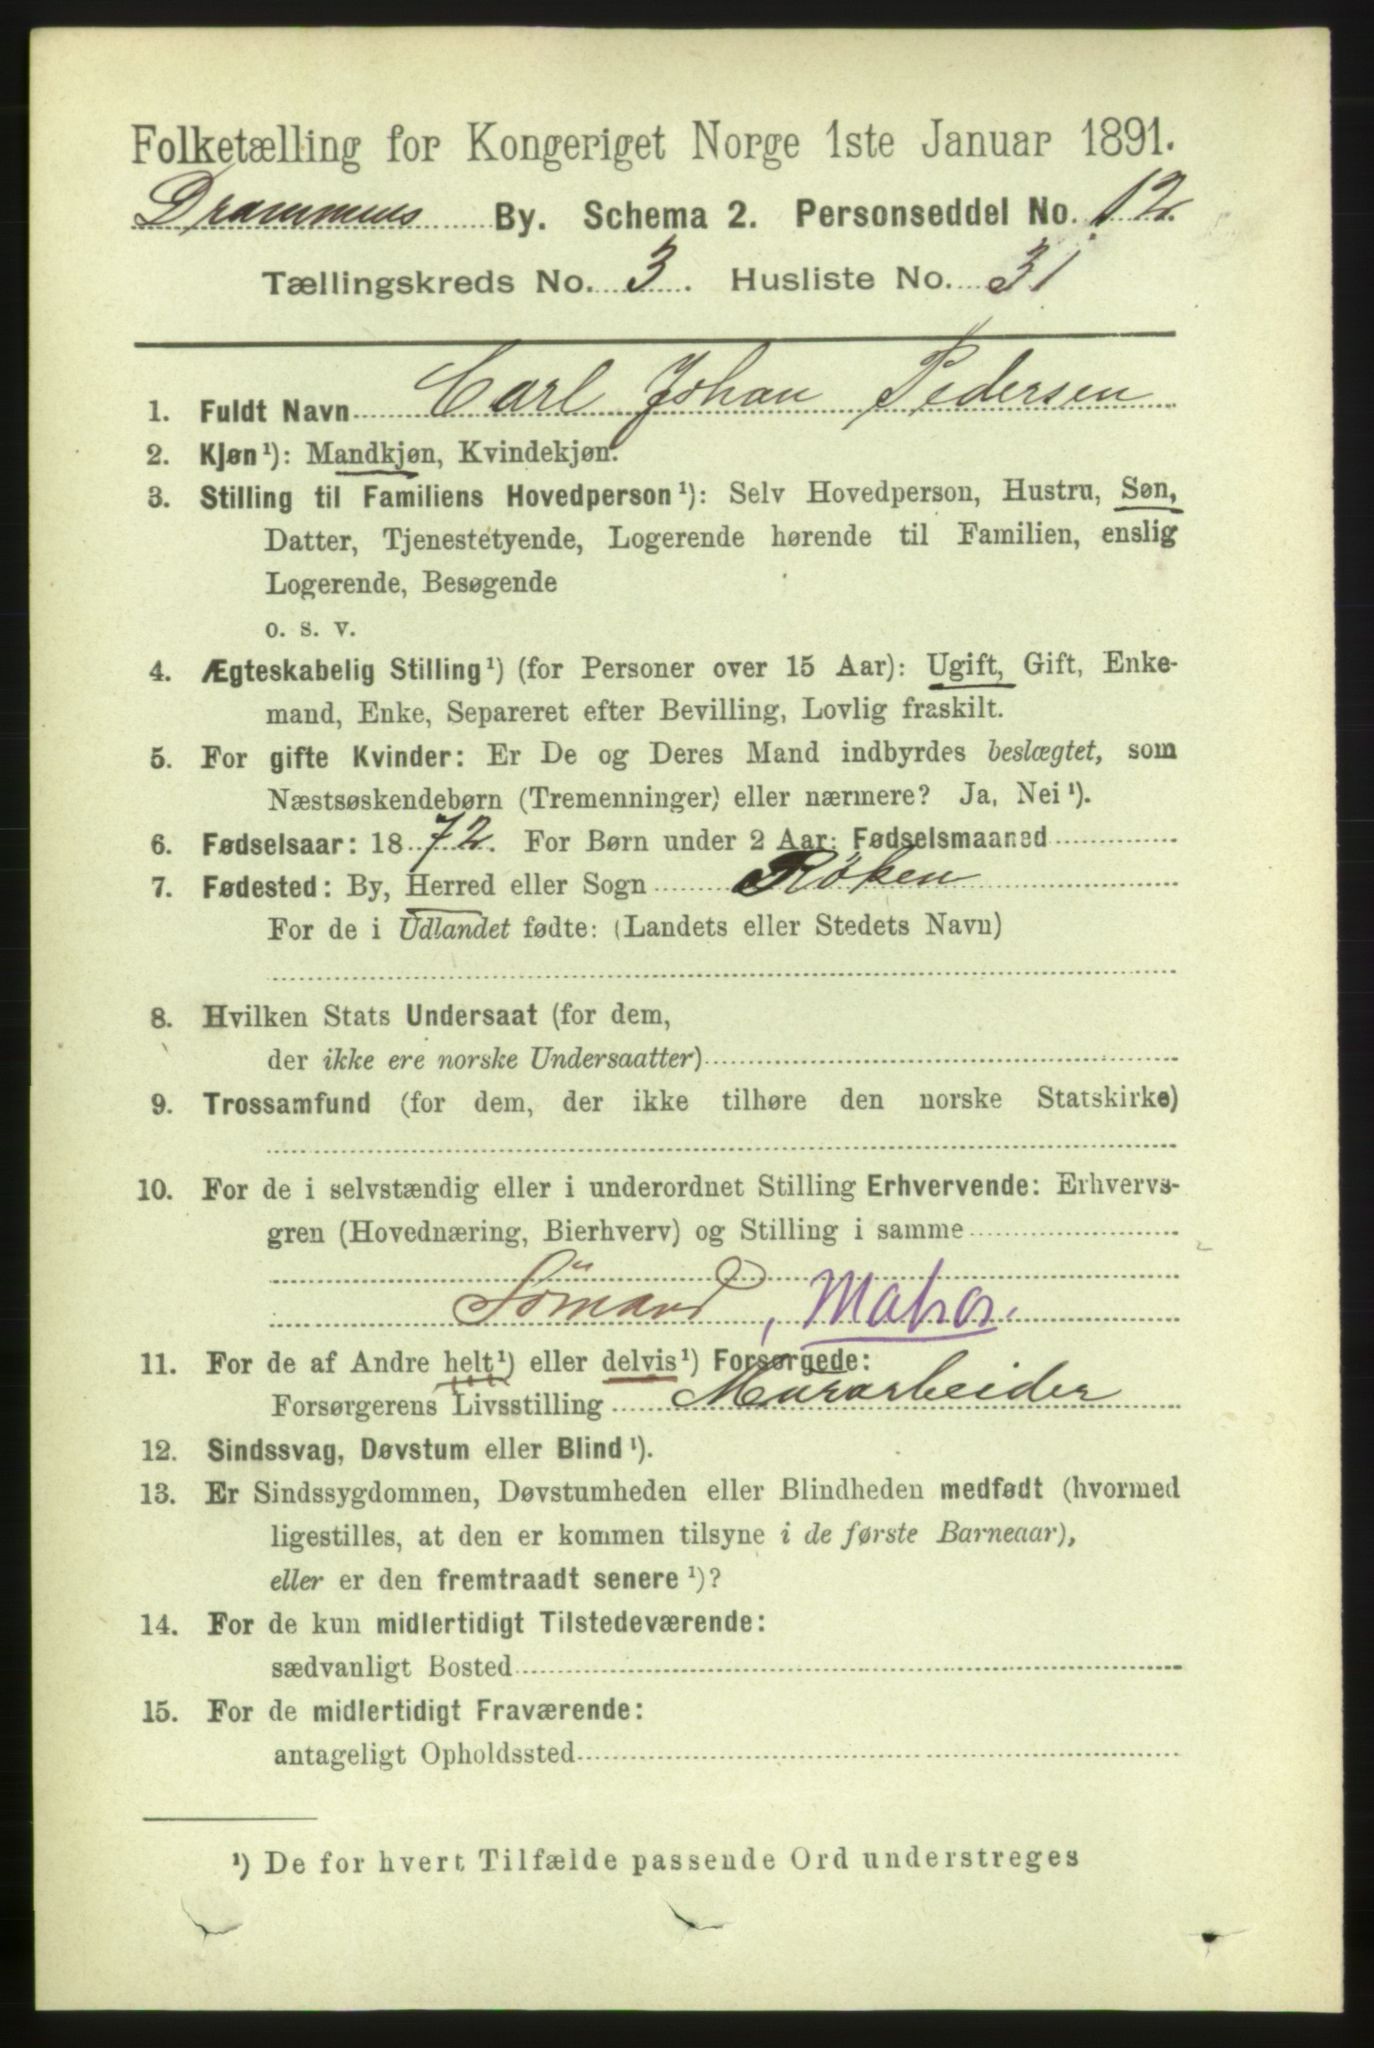 Folketælling for Kongeriget Norge 1ste Januar 1891.
Drammens By. Schema 2. Personseddel No. 12.
Tællingskreds No. 3. Husliste No. 31
1. Fuldt Navn Carl Johan Pedersen
2. Kjøn¹): Mandkjøn, Kvindekjøn.
3. Stilling til Familiens Hovedperson¹): Selv Hovedperson, Hustru, Søn,
Datter, Tjenestetyende, Logerende hørende til Familien, enslig
Logerende, Besøgende
o. s. v.
4. Ægteskabelig Stilling¹) (for Personer over 15 Aar): Ugift, Gift, Enke-
mand, Enke, Separeret efter Bevilling, Lovlig fraskilt.
5. For gifte Kvinder: Er De og Deres Mand indbyrdes beslægtet, som
Næstsøskendebørn (Tremenninger) eller nærmere? Ja, Nei¹).
6. Fødselsaar: 1872. For Børn under 2 Aar: Fødselsmaaned
7. Fødested: By, Herred eller Sogn Røken
For de i Udlandet fødte: (Landets eller Stedets Navn)
8. Hvilken Stats Undersaat (for dem,
der ikke ere norske Undersaatter)
9. Trossamfund (for dem, der ikke tilhøre den norske Statskirke)
10. For de i selvstændig eller i underordnet Stilling Erhvervende: Erhvervs-
gren (Hovednæring, Bierhverv) og Stilling i samme
Sömand, Matros.
11. For de af Andre helt¹) eller delvis¹) Forsørgede:
Forsørgerens Livsstilling Murarbeider
12. Sindssvag, Døvstum eller Blind¹).
13. Er Sindssygdommen, Døvstumheden eller Blindheden medfødt (hvormed
ligestilles, at den er kommen tilsyne i de første Barneaar),
eller er den fremtraadt senere¹)?
14. For de kun midlertidigt Tilstedeværende:
sædvanligt Bosted
15. For de midlertidigt Fraværende:
antageligt Opholdssted
¹) De for hvert Tilfælde passende Ord understreges